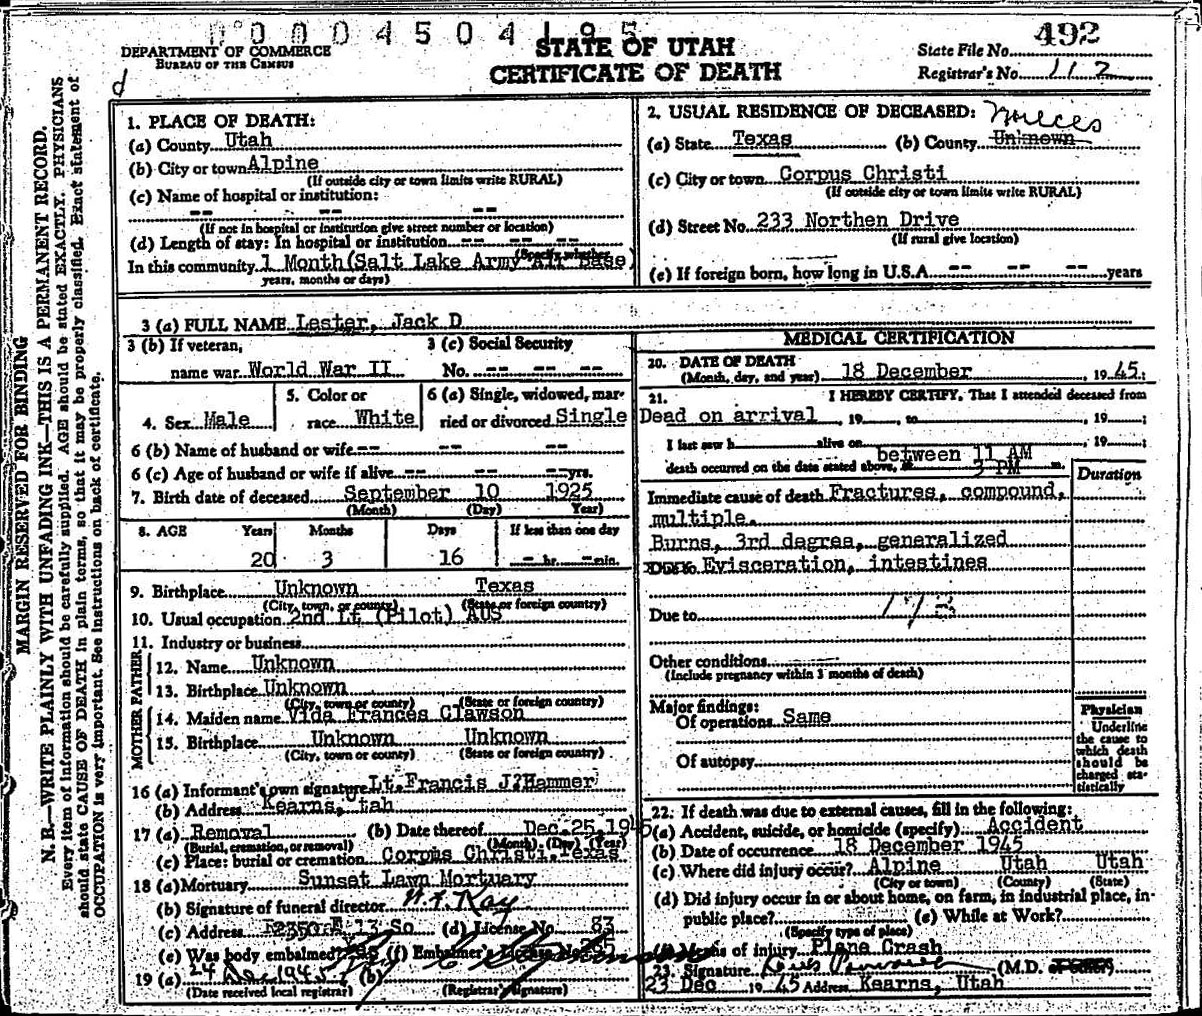 0 0 0 4 5 0 4 1 9 5
DEPARTMENT OF COMMERCE
BUREAU OF THE CENSUS
STATE OF UTAH
CERTIFICATE OF DEATH
State File No. 492
Registrar's No. 112
d
MARGIN RESERVED FOR BINDING
N. B.—WRITE PLAINLY WITH UNFADING INK—THIS IS A PERMANENT RECORD.
Every item of information should be carefully supplied. AGE should be stated EXACTLY. PHYSICIANS
should state CAUSE OF DEATH in plain terms, so that it may be properly classified. Exact statement of
OCCUPATION is very important. See instructions on back of certificate.
1. PLACE OF DEATH:
(a) County Utah
(b) City or town Alpine
(If outside city or town limits write RURAL)
(c) Name of hospital or institution:
-- -- --
(If not in hospital or institution give street number or location)
(d) Length of stay: In hospital or institution -- -- --
(Specify whether
In this community 1 Month(Salt Lake Army Air Base)
years, months or days)
2. USUAL RESIDENCE OF DECEASED: Nueces
(a) State Texas (b) County Unknown
(c) City or town Corpus Christi
(If outside city or town limits write RURAL)
(d) Street No. 233 Northen Drive
(If rural give location)
(e) If foreign born, how long in U.S.A. -- -- -- years
3 (a) FULL NAME Lester, Jack D
3 (b) If veteran,
name war World War II
3 (c) Social Security
No. -- -- --
4. Sex Male
5. Color or
race White
6 (a) Single, widowed, mar-
ried or divorced Single
6 (b) Name of husband or wife -- -- --
6 (c) Age of husband or wife if alive -- -- -- yrs.
7. Birth date of deceased September 10 1925
(Month) (Day) Year)
8. AGE Years Months Days If less than one day
20 3 16 - hr. - min.
9. Birthplace Unknown Texas
(City, town, or county) (State or foreign country)
10. Usual occupation 2nd Lt (Pilot) AUS
11. Industry or business
FATHER
12. Name Unknown
13. Birthplace Unknown
(City, town or county) (State or foreign country)
MOTHER
14. Maiden name Vida Frances Clawson
15. Birthplace Unknown Unknown
(City, town or county) (State or foreign country)
16 (a) Informant's own signature Lt. Francis J. Hammer
(b) Address Kearns, Utah
17 (a) Removal (b) Date thereof Dec. 25, 1945
(Burial, cremation, or removal) (Month) (Day) (Year)
(c) Place: burial or cremation Corpus Christi, Texas
18 (a) Mortuary Sunset Lawn Mortuary
(b) Signature of funeral director
(c) Address 2350 E 13 So (d) License No. 83
(e) Was body embalmed? Yes (f) Embalmer's License No.
19 (a) 24 Dec 1945 (b)
(Date received local registrar) (Registrar's signature)
MEDICAL CERTIFICATION
20. DATE OF DEATH
(Month, day, and year) 18 December , 1945;
21. I HEREBY CERTIFY, That I attended deceased from
Dead on arrival , 19 , to , 19 ;
I last saw h alive on , 19 ;
between 11 AM
death occurred on the date stated above, at 3 PM m.
Duration
Immediate cause of death Fractures, compound,
multiple.
Burns, 3rd degree, generalized
Evisceration, intestines
Due to 173
Other conditions
(Include pregnancy within 3 months of death)
Major findings:
Of operations Same
Of autopsy
Physician
Underline
the cause to
which death
should be
charged sta-
tistically
22. If death was due to external causes, fill in the following:
(a) Accident, suicide, or homicide (specify) Accident
(b) Date of occurrence 18 December 1945
(c) Where did injury occur? Alpine Utah Utah
(City or town) (County) (State)
(d) Did injury occur in or about home, on farm, in industrial place, in
public place? (e) While at Work?
(Specify type of place)
(f) Means of injury Plane Crash
23. Signature (M.D. or other)
23 Dec 1945 Address Kearns, Utah